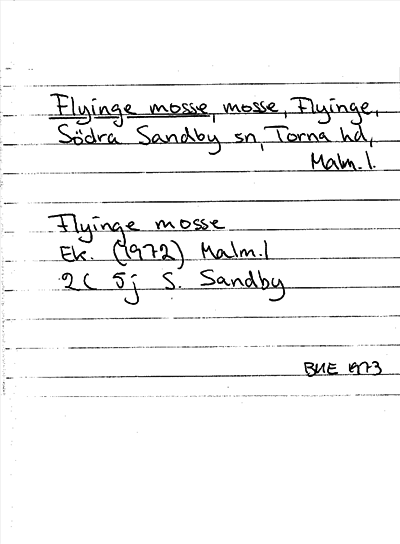 Flyinge mosse, mosse, Flyinge,
Södra Sandby sn, Torna hd,
Malm.l.
Flyinge mosse
Ek. (1972) Malm.l
2C 5j S. Sandby
BHE 1973